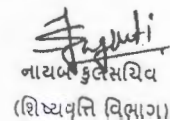 નાયબ કુલસચિવ
(શિષ્યવૃત્તિ વિભાગ)